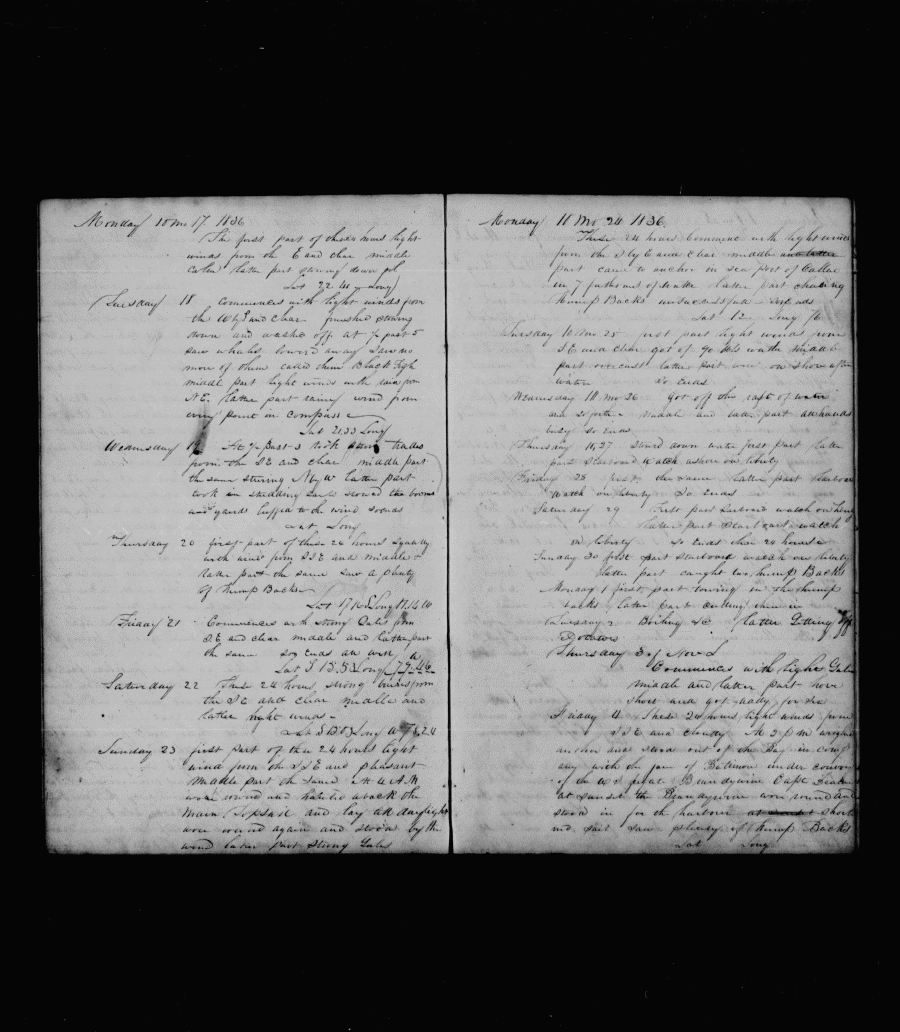 Monday 10 mo 17 1836
The first part of these hours light
winds from the E and clear middle
latter part stowing down oil
Lat 22.41 Long
Tuesday 18 Commences with light winds from
the and clear finished stowing
down and washed off at ½ past 5
saw whales lowered away saw no
more of them called them Black Fish
middle part light winds with rain from
NE. latter part rainy wind from
every point in compass
Lat 21.33 Long
Wednesday 19 At ½ past 3 took trades
from the SE and clear middle part
the same steering N by W latter part
took in studding sails stowed the booms
and yards to the wind so ends
Lat Long
Thursday 20 first part of these 24 hours squally
with wind from SSE and middle +
later part the same saw a plenty
of Hump Backs
Lat 17.16 S Long
Friday 21 Commences with strong Gales from
SE and clear middle and latter part
the same so Ends all well
Lat S 15.53 Long 77.46
Saturday 22 These 24 hours strong winds from
the SE and clear middle and
latter light winds
Lat S Long W 76.24
Sunday 23 first part of these 24 hours light
wind from the SSE and pleasant
Middle part the same At 4 A.M
wore round and hauled aback the
main Topsail and lay till daylight
wore round again and stood by the
wind latter part strong Gales
Monday 10 Mo 24 1836
These 24 hours Commence with light winds
from the S by E and clear middle and latter
part came to anchor in sea port of Callao
in 7 fathoms of water latter part chasing
Hump Backs unsuccessful so Ends
Lat 12 Long 76
Tuesday 10 mo 25 first part light winds from
SE and clear got of 90 bls water middle
part overcast latter part went on shore after
water so Ends
Wednesday 10 Mo 26 Got off the raft of water
and so forth middle and latter part all hands
busy so ends
Thursday 10, 27 stowed down water first part latter
part starboard watch ashore on liberty
Friday 28 first, the same latter part larboard
watch on liberty So Ends
Saturday 29 first part Larboard watch on liberty
latter part starboard watch
on liberty so Ends these 24 hours
Sunday 30 first part starboard watch on liberty
latter part caught two Hump Backs
Monday 1 first part towing in the hump
backs latter part cutting them in
Boiling &c latter Getting off
Potatoes
Thursday 3 of Nov
Commences with light Gales
middle and latter part hove
short and got ready for sea
Friday 4 These 24 hours light winds from
SSE and cloudy At 2 P M weighed
anchor and stood out of the Bay in comp
any with the of Baltimore under convoy
of the US frigate Brandywine Capt
at sunset the Brandywine wore round and
stood in for the harbour at short
ned sail saw plenty of Hump Backs
Lat Long